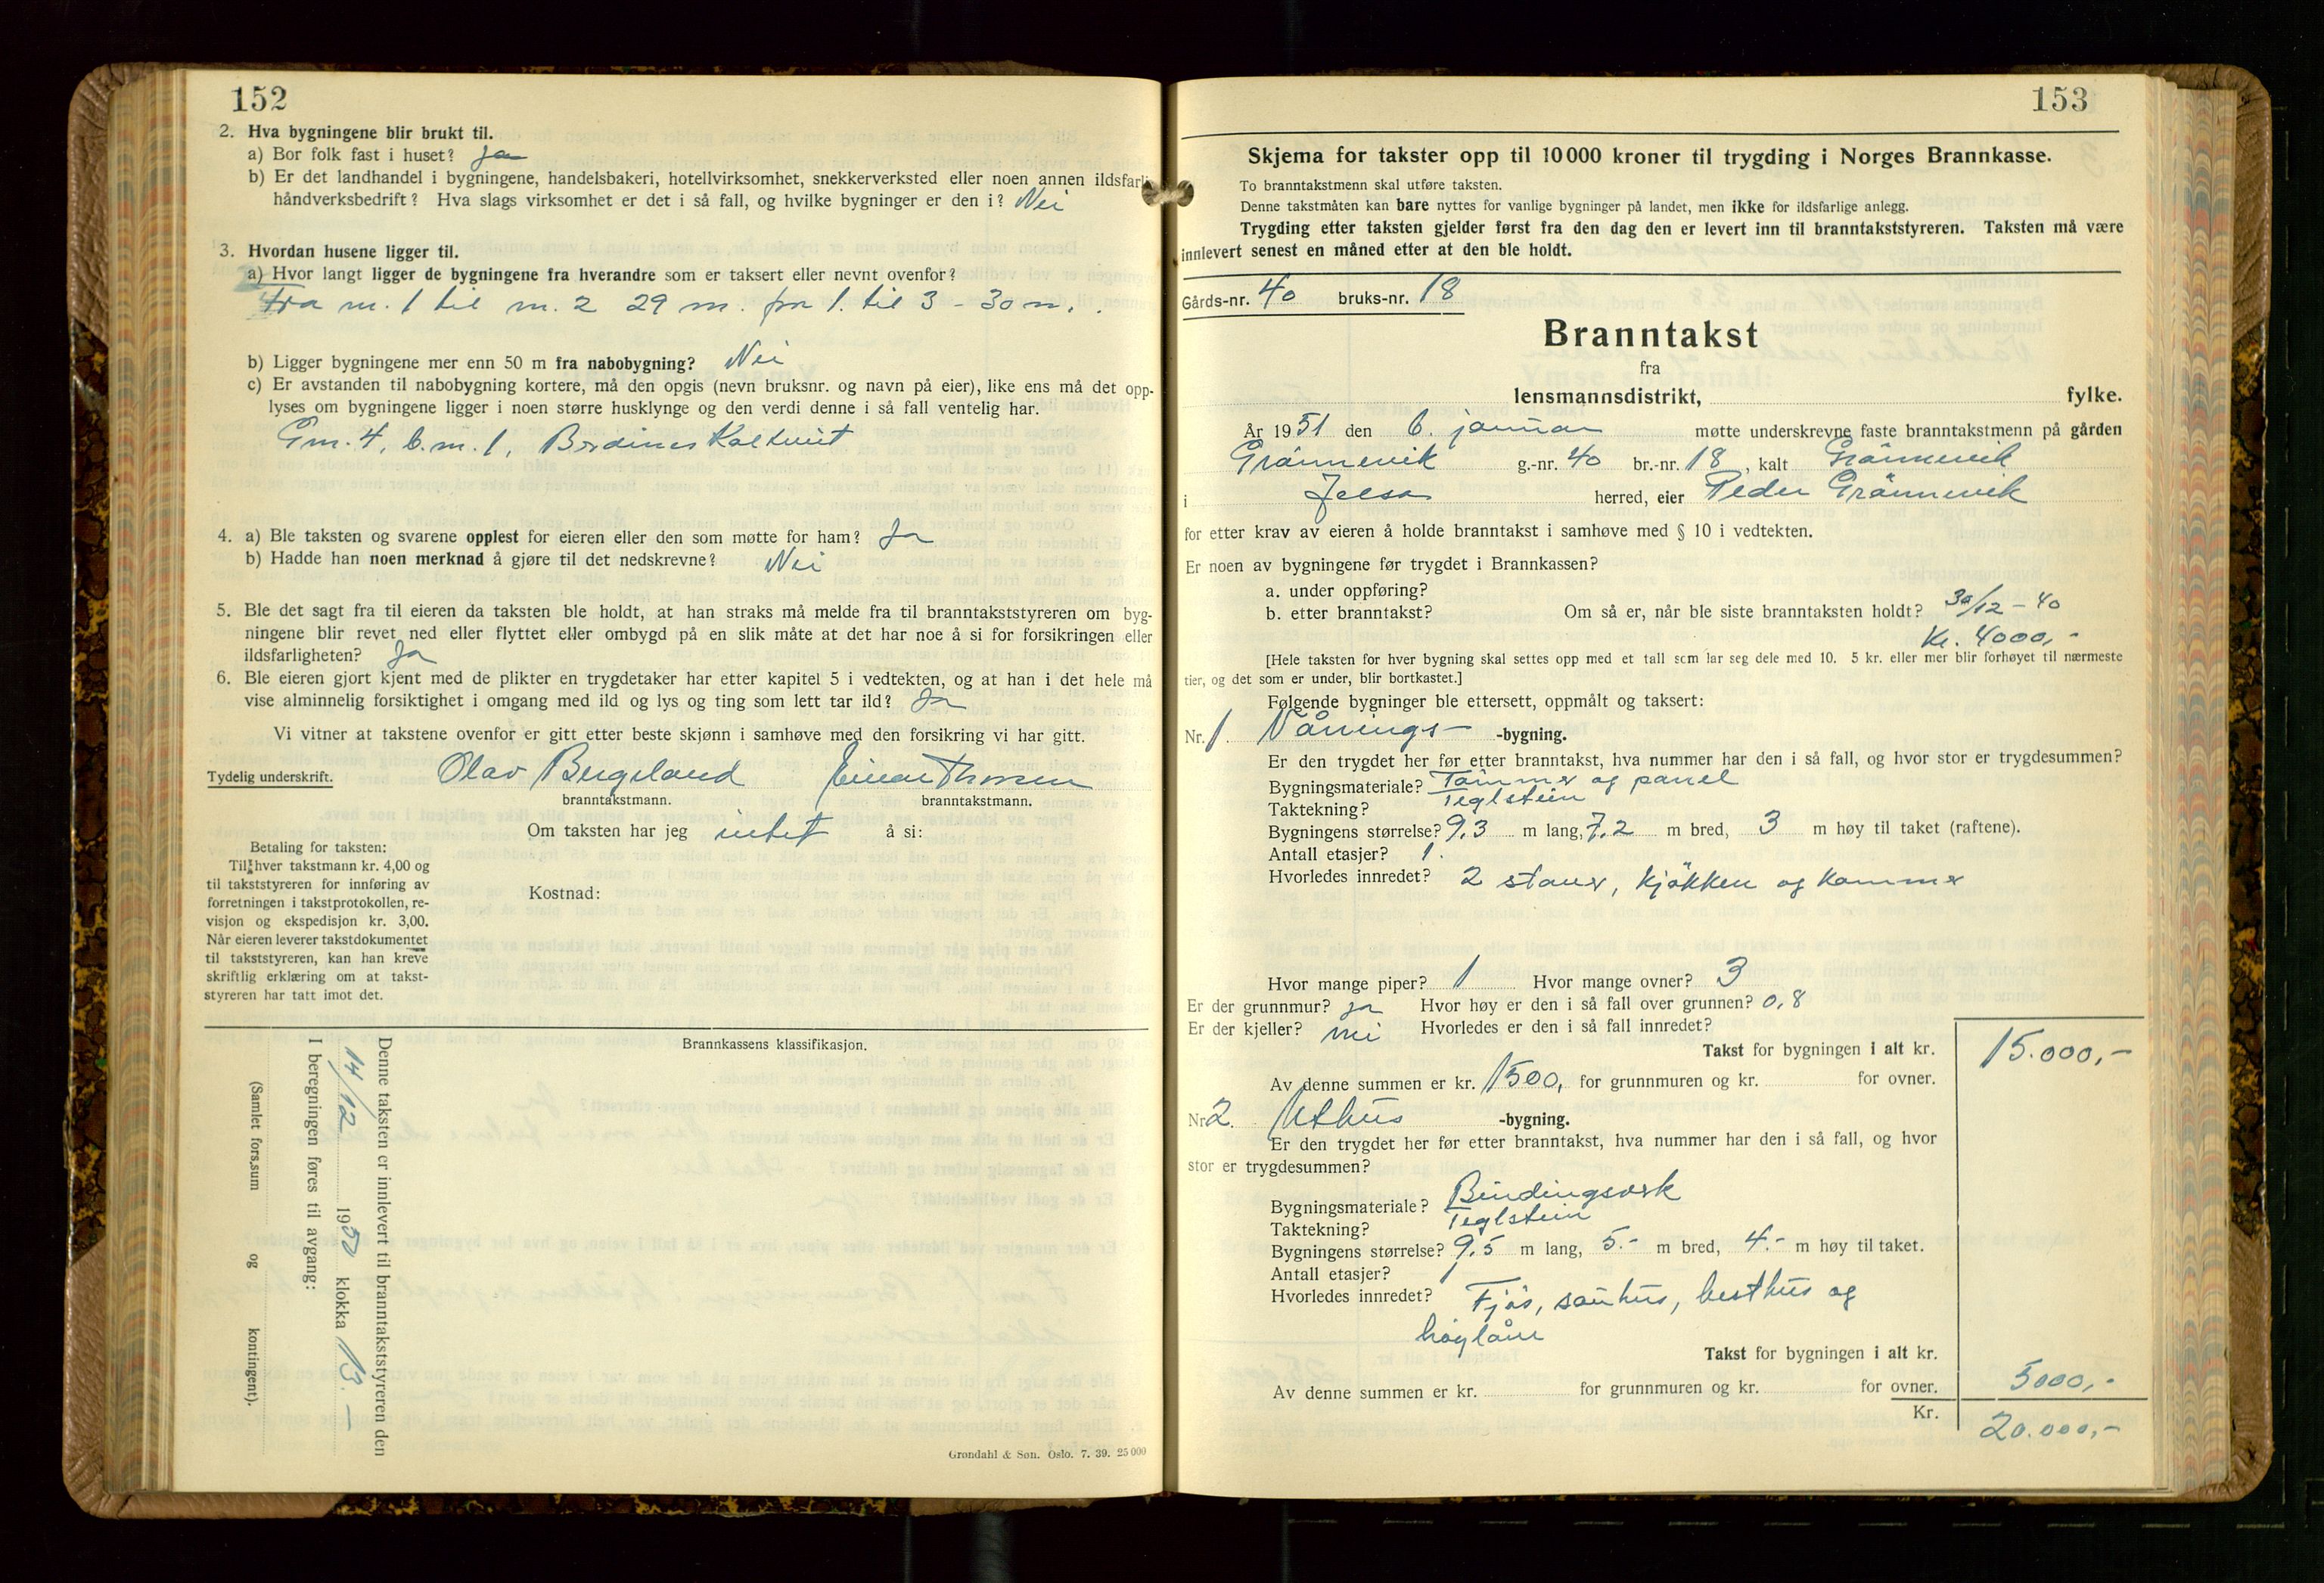 152
2. Hva bygningene blir brukt til.
a) Bor folk fast i huset? Ja
b) Er det landhandel i bygningene, handelsbakeri, hotellvirksomhet, snekkerverksted eller noen annen ildsfarlig
håndverksbedrift? Hva slags virksomhet er det i så fall, og hvilke bygninger er den i? Nei
3. Hvordan husene ligger til.
a) Hvor langt ligger de bygningene fra hverandre som er taksert eller nevnt ovenfor?
Fra nr. 1 til nr. 2 29 m. fra 1. til 3 – 30 m.
b) Ligger bygningene mer enn 50 m fra nabobygning? Nei
c) Er avstanden til nabobygning kortere, må den opgis (nevn bruksnr. og navn på eier), like ens må det opp-
lyses om bygningene ligger i noen større husklynge og den verdi denne i så fall ventelig har.
Gnr. 4, b.nr. 1, Berdines
4. a) Ble taksten og svarene opplest for eieren eller den som møtte for ham? Ja
b) Hadde han noen merknad å gjøre til det nedskrevne? Nei
5. Ble det sagt fra til eieren da taksten ble holdt, at han straks må melde fra til branntakststyreren om byg-
ningene blir revet ned eller flyttet eller ombygd på en slik måte at det har noe å si for forsikringen eller
ildsfarligheten? Ja
6. Ble eieren gjort kjent med de plikter en trygdetaker har etter kapitel 5 i vedtekten, og at han i det hele må
vise alminnelig forsiktighet i omgang med ild og lys og ting som lett tar ild? Ja
Vi vitner at takstene ovenfor er gitt etter beste skjønn i samhøve med den forsikring vi har gitt.
Tydelig underskrift. Olav Bergeland Einar Thorsen
branntakstmann. branntakstmann.
Om taksten har jeg intet å si:
Kostnad:
Betaling for taksten:
Til hver takstmann kr. 4,00 og
til takststyreren for innføring av
forretningen i takstprotokollen, re-
visjon og ekspedisjon kr. 3,00.
Når eieren leverer takstdokumentet
til takststyreren, kan han kreve
skriftlig erklæring om at takst-
styreren har tatt imot det.
Brannkassens klassifikasjon.
Denne taksten er innlevert til branntakststyreren den
14/12 1950 klokka 13. –
I beregningen føres til avgang:
(Samlet fors.sum og kontingent).
Grøndahl & Søn. Oslo. 7. 39. 25 000
153
Skjema for takster opp til 10 000 kroner til trygding i Norges Brannkasse.
To branntakstmenn skal utføre taksten.
Denne takstmåten kan bare nyttes for vanlige bygninger på landet, men ikke for ildsfarlige anlegg.
Trygding etter taksten gjelder først fra den dag den er levert inn til branntakststyreren. Taksten må være
innlevert senest en måned etter at den ble holdt.
Gårds-nr. 40 bruks-nr. 18
Branntakst
fra
lensmannsdistrikt, fylke.
År 1951 den 6. januar møtte underskrevne faste branntakstmenn på gården
Grönnevik g.-nr. 40 br.-nr. 18, kalt Grönnevik
i Jelsa herred, eier Peder Grönnevik
for etter krav av eieren å holde branntakst i samhøve med § 10 i vedtekten.
Er noen av bygningene før trygdet i Brannkassen?
a. under oppføring?
b. etter branntakst? Om så er, når ble siste branntaksten holdt? 30/12 – 40
Kr. 4000,-
[Hele taksten for hver bygning skal settes opp med et tall som lar seg dele med 10. 5 kr. eller mer blir forhøyet til nærmeste
tier, og det som er under, blir bortkastet.]
Følgende bygninger ble ettersett, oppmålt og taksert:
Nr. 1. Vånings- -bygning.
Er den trygdet her før etter branntakst, hva nummer har den i så fall, og hvor stor er trygdesummen?
Bygningsmateriale? Tömmer og panel
Taktekning? Teglstein
Bygningens størrelse? 9,3 m lang, 7,2 m bred, 3 m høy til taket (raftene).
Antall etasjer? 1.
Hvorledes innredet? 2 stauer, kjökken og kammer
Hvor mange piper? 1 Hvor mange ovner? 3
Er der grunnmur? ja Hvor høy er den i så fall over grunnen? 0,8
Er der kjeller? nei Hvorledes er den i så fall innredet?
Takst for bygningen i alt kr. 15.000,-
Av denne summen er kr. 1500, for grunnmuren og kr. for ovner.
Nr 2. Uthus -bygning.
Er den trygdet her før etter branntakst, hva nummer har den i så fall, og hvor
stor er trygdesummen?
Bygningsmateriale? Bindingsverk
Taktekning? Teglstein
Bygningens størrelse? 9,5 m lang, 5.- m bred, 4.- m høy til taket.
Antall etasjer? 1
Hvorledes innredet? Fjös, sauhus, hesthus og
höylåve
Takst for bygningen i alt kr.
Av denne summen er kr. for grunnmuren og kr. for ovner. 5000,-
Kr. 20.000,-